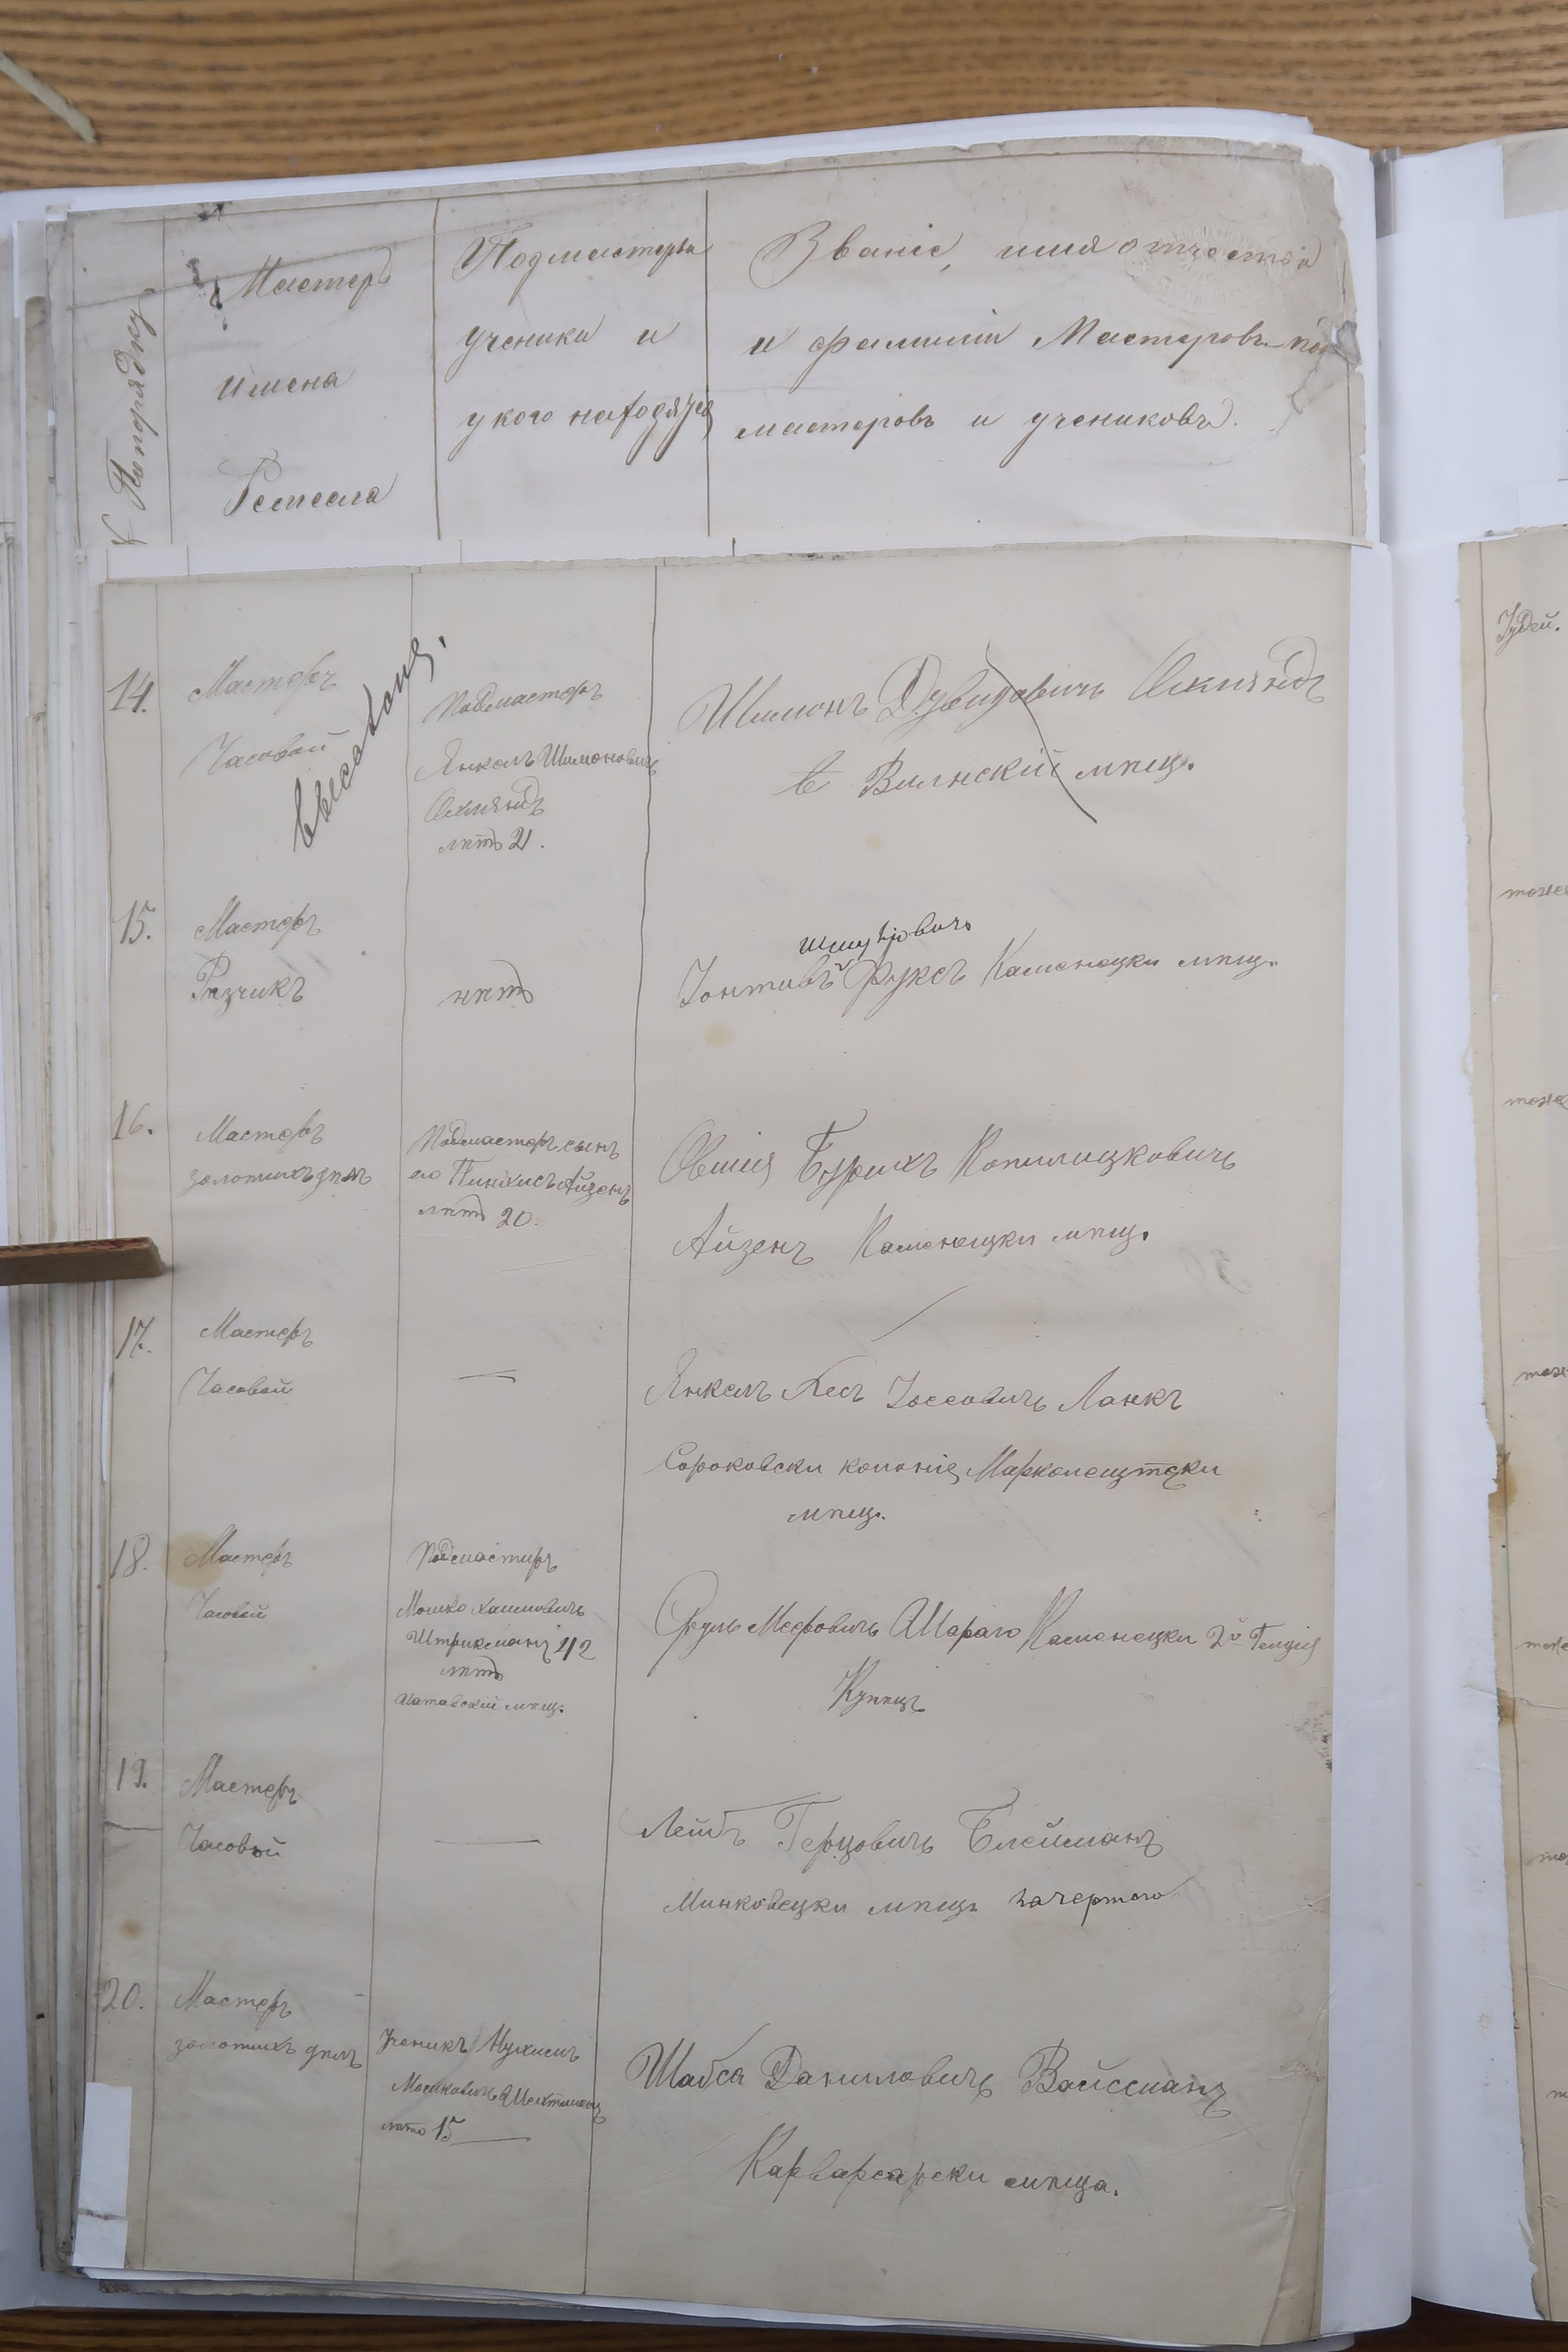 № Попорядку
Мастеръ
имена
Ремесла
Подмастеръя
ученики и
у кого находятся
Званіе, имя отчества
и фамиліи Мастеровъ под
мастеровъ и учениковъ.
14.
Мастеръ
Часовой
Подмастеръ
Янкель Шимоновичъ
лѣтъ 21.
Шимонъ Дувидовичъ
Виленскій мѣщ.
15.
Мастеръ
Рѣзчикъ
нѣтъ
Шмулёвичъ
Іонтивъ Фуксъ Каменецки мѣщ.
16.
Мастеръ
золотыхъ дѣлъ
Подмастеръ сынъ
его Пинхисъ Айзенъ
лѣтъ 20.
Овшія Бурихъ
Айзенъ Каменецки мѣщ.
17.
Мастеръ
Часовой
—
Янкель Іоссовичъ Ланкъ
Сороковски колоніе, Маркалештски
мѣщ.
18.
Мастеръ
Часовой
Подмастиръ
Мошко Хаимовичъ
Штрикманъ 42
лѣтъ
мѣщ.
Каменецки 2й Гилдія
Купецъ
19.
Мастеръ
Часовой
—
Лейбъ Герцовичъ Блейманъ
Минковецки мѣщъ
20.
Мастеръ
золотыхъ дѣлъ
Ученикъ Нухимъ
Мошковичъ Шехтманъ
лѣтъ 15
Шабса Даниловичъ Вайсманъ
Карварсарски мѣща.
Іудей.